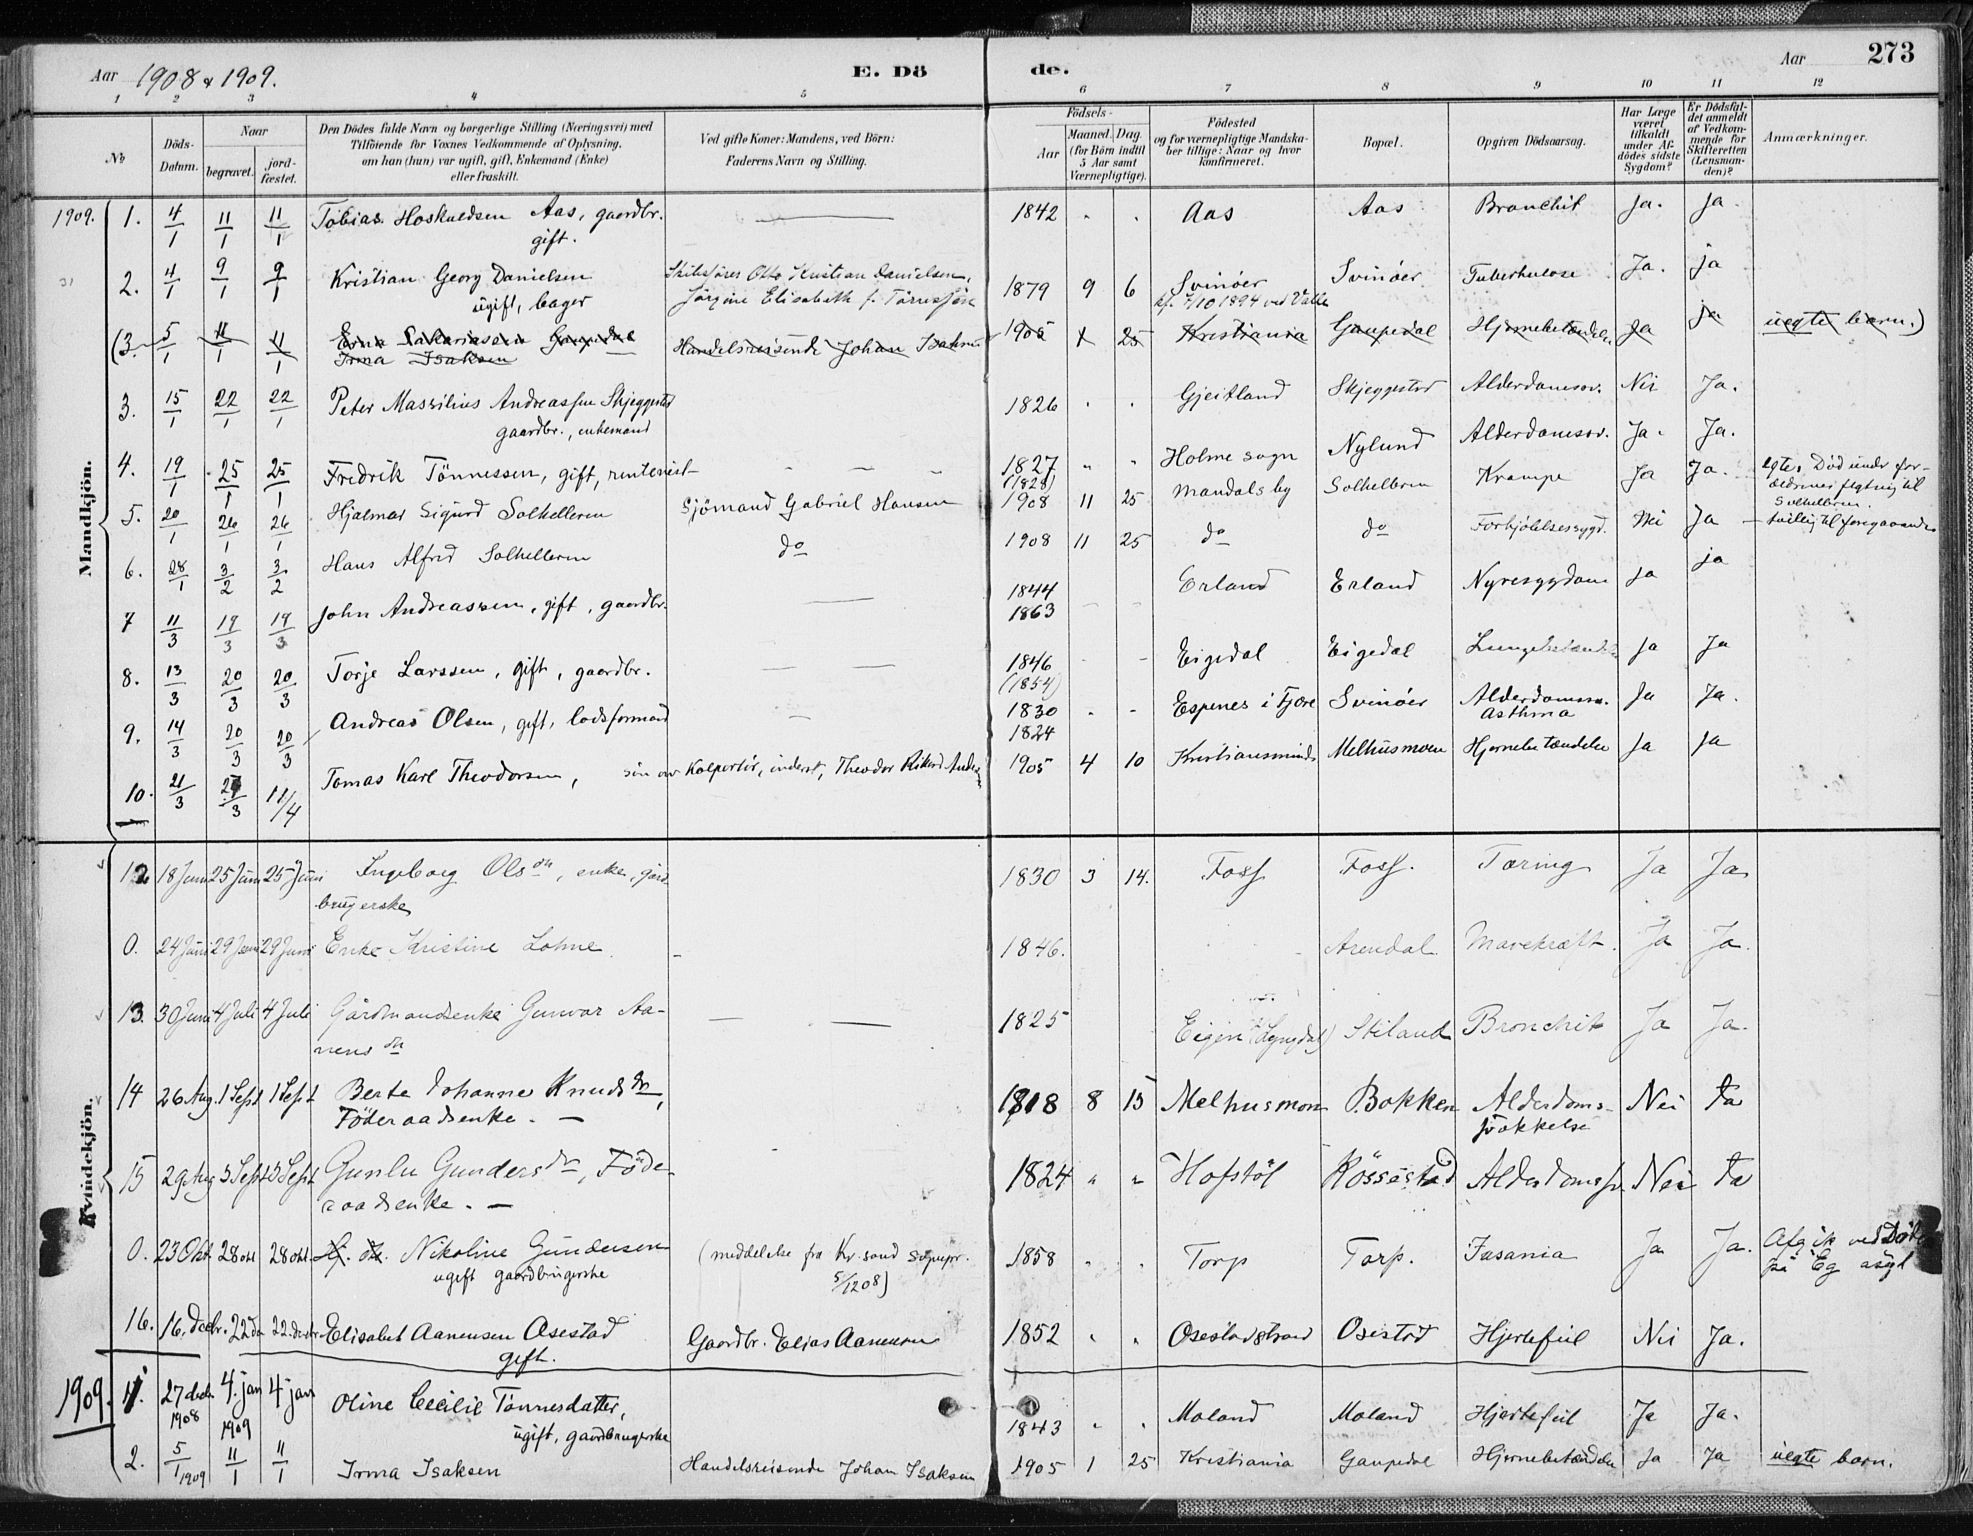 Aar 1908 & 1909. E. Dö de. Aar 273
1 2 3 4 5 6 7 8 9 10 11 12
№ Döds-Datum. Naar begravet. jordfæstet. Den Dödes fulde Navn og borgerlige Stilling (Næringsvei) med Tilföiende for Voxnes Vedkommende af Oplysning, om han (hun) var ugift, gift, Enkemand (Enke) eller fraskilt. Ved gifte Koner: Mandens, ved Börn: Faderens Navn og Stilling. Födsels- Aar Maaned. Dag. (for Börn indtil 5 Aar samt Værnepligtige). Födested og for værnepligtige Mandskaber tillige: Naar og hvor konfirmeret. Bopæl. Opgiven Dödsaarsag. Har Læge været tilkaldt under Afdödes sidste Sygdom? Er Dödsfaldet anmeldt af Vedkommende for Skifteretten (Lensmanden)? Anmærkninger.
Mandkjön.
1909. 1. 4/1 11/1 11/1 Tobias Hoskuldsen Aas, gaardbr. 1842 " " Aas Aas Bronchit Ja. Ja.
gift.
2. 4/1 9/1 9/1 Kristian Georg Danielsen Skibsfører Otto Kristian Danielsen, 1879 9 6 Svinöer Svinöer Tuberkulose Ja. ja
ugift, bager Jörgine Elisabeth f. kf. 7/10 1894 ved Valle
(3. 5/1 11/1 11/1 Gaupedal Handelsreisende Johan Isaksen 1905 1 25 Kristiania Gaupedal Hjernebetændelse Ja ja uegte barn.)
Irma Isaksen
3. 15/1 22/1 22/1 Peter Massilius Andreassen Skjeggestad 1826 " " Gjeitland Skjeggestad Alderdomssv. Nei Ja.
gaardbr., enkemand
4. 19/1 25/1 25/1 Fredrik Tönnessen, gift, rentenist 1827 " " Holme sogn Nylund Alderdomssv. Ja. Ja.
(1828)
5. 20/1 26/1 26/1 Hjalmar Sigurd Solhelleren Sjömand Gabriel Hansen 1908 11 25 Mandals by Solhelleren Krampe Ja Ja. egte. Död under for-
ældrenes flytning til
Solhelleren.
6. 28/1 3/2 3/2 Hans Alfred Solhelleren do 1908 11 25 do do Forkjölelsessygd. Nei Ja tvilling til foregaaende
7 11/3 19/3 19/3 John Andreassen, gift, gaardbr. 1844 Erland Erland Nyresygdom ja ja
1863
8. 13/3 20/3 20/3 Torje Larssen, gift, gaardbr. 1846 " " Eigedal Eigedal Lungebetændelse ja Ja
(1854)
9. 14/3 20/3 20/3 Andreas Olsen, gift, lodsformand 1830 " " Espenes i Fjære Svinöer Alderdomssv. Ja Ja.
1824 Asthma
10. 21/3 27/3 11/4 Tomas Karl Theodorsen, sön av Kolportör, inderst, Theodor Rikard 1905 4 10 Kristiansminde Melhusmoen Hjernebetændelse Ja ja
Kvindekjön.
12 18 Juni 25 Juni 25 Juni Ingeborg Olsdn, enke, gård- 1830 3 14. Foss Foss. Tæring Ja Ja
brugerske
0. 24 Juni 29 Juni 29 Juni Enke Kristine Lohne 1846. Arendal Mavekræft. Ja Ja.
13. 30 Juni 4 Juli 4 Juli Gårdmandsenke Gunvor Aa- 1825 Eigen (Lyngdal) Stiland Bronchit Ja Ja.
nensdn
14 26 Aug. 1 Sept 1 Sept Berte Johanne Knudsdn, 1818 8 15 Melhusmoen Bakken Alderdoms- Nei Ja
Föderaadsenke. — svækkelse
15 29 Aug 3 Sept 3 Sept Gunlu Gundersdn, Föde- 1824 " " Hofstöl Rössestad Alderdomssv Nei Ja
raadsenke. —
0. 23 Okt 28 okt. 28 okt. Nikoline Gundersen (meddelelse fra Kr.sand sognepr. 1858 " " Torp Torp. Ja Ja. Afgik ved Döden
ugift gaardbrugerske 5/12 08) på Eg asyl
16. 16. decbr. 22 de 22. decbr. Elisabet Aanensen Osestad Gaardbr. Elias Aanensen 1852 " " Osestadstrand Osestad Hjertefeil Nei Ja.
gift.
1909. 1. 27 decb. 1908 4. jan 1909 4 jan Oline Cecilie Tönnesdatter, 1843 " " Moland Moland Hjertefeil Ja Ja.
ugift, gaardbrugerske
2. 5/1 1909 11/1 11/1 Irma Isaksen Handelsreisende Johan Isaksen 1905 1 25 Kristiania Gaupedal Hjernebetændelse Ja Ja uegte barn.